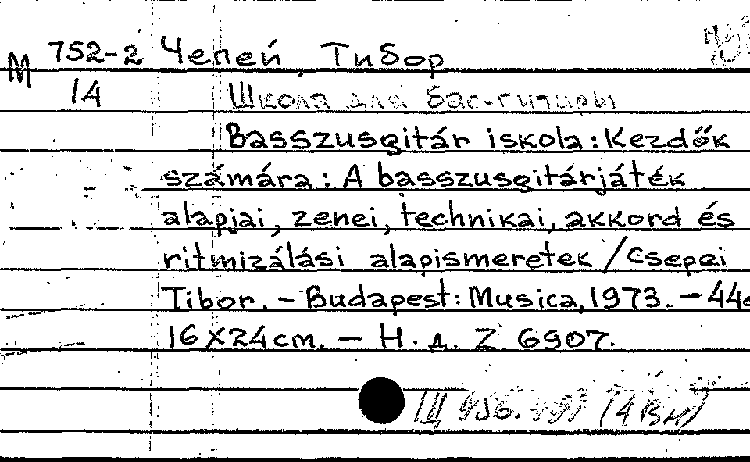 М 752-2 Чепей, Тибор
14 Школа для бас-гитары
Basszusgitár iskola: Kezdők
számára: A basszusgitárjáték
alapjai, zenei, technikai, akkord és
ritmizálási alapismeretek / Csepei
Tibor. – Budapest: Musica, 1973. – 44c
16x24cm. – Н. д. Z 6907.